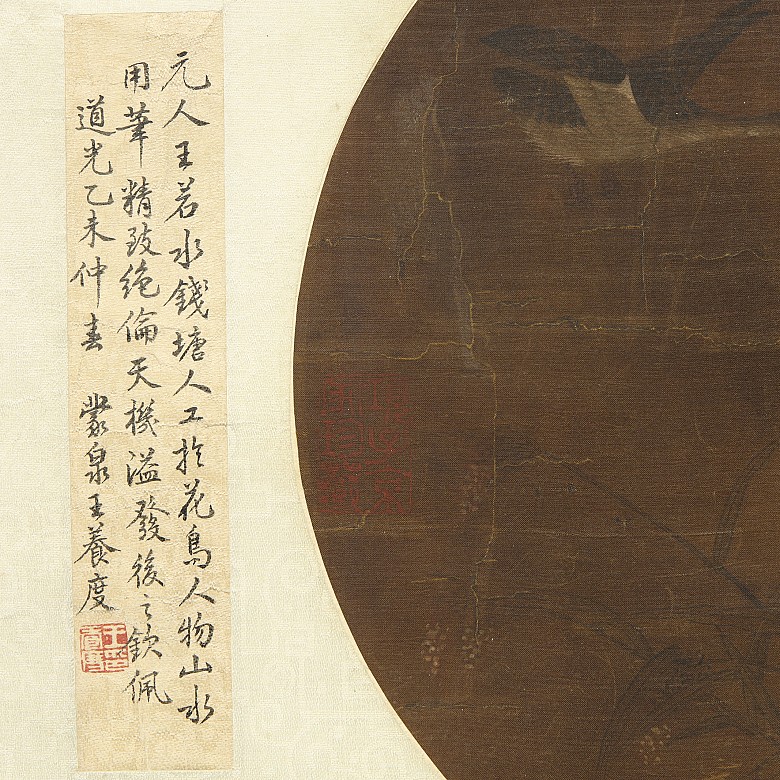 元人王若水錢塘人工於花鳥人物山水
用筆精致絶倫天機溢發後之欽佩
道光乙未仲春 蒙泉王養度